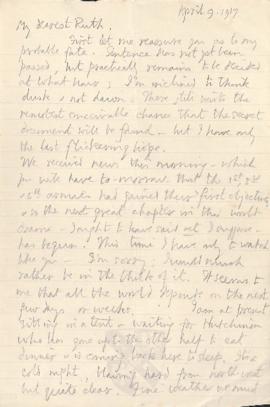 April 9. 1917
My dearest Ruth,
First let me reassure you as to my
probable fate. Sentence has not yet been
passed, but practically remains to be decided
at what hour; I'm inclined to think
dusk & not dawn. There still exists the
remotest conceivable chance that the secret
document will be found – but I have only
the last flickering hope.
We received news this morning – which
you will have to-morrow that the 1st & 3rd
armies had gained their "first objective"
& so the next great chapter in this world
drama – I ought to have said act I suppose –
has begun. This time I have only to watch
like you – I'm sorry; I'd much
rather be in the thick of it. It seems to
me that all the world depends on the next
few days or weeks. I am at present
sitting in a tent – waiting for Hutchinson
who has gone up to the other half to eat
dinner & is coming back here to sleep, It's a
cold night, blowing hard from north west
but quite clear. Fine weather we must